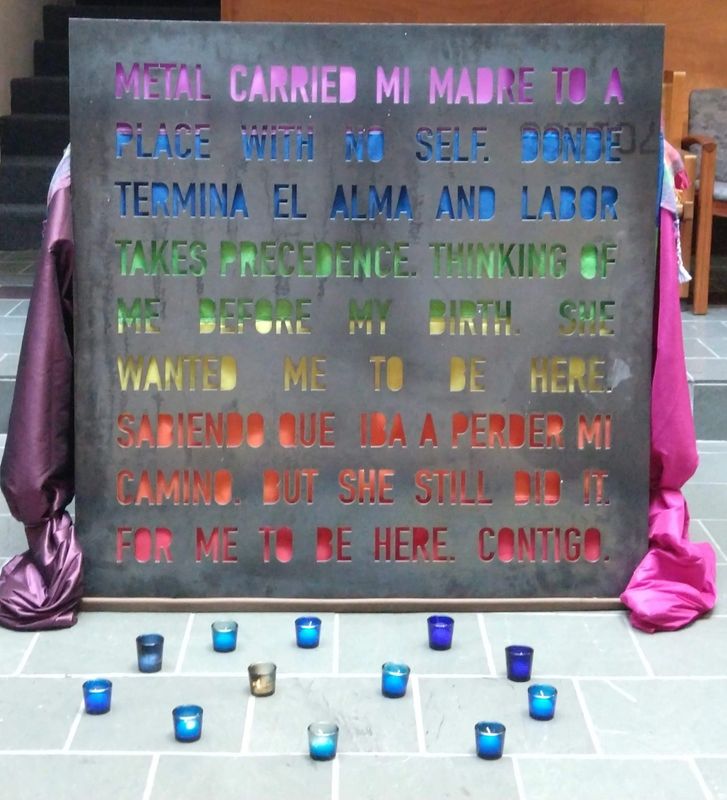 METAL CARRIED MI MADRE TO A
PLACE WITH NO SELF. DONDE
TERMINA EL ALMA AND LABOR
TAKES PRECEDENCE. THINKING OF
ME BEFORE MY BIRTH. SHE
WANTED ME TO BE HERE.
SABIENDO QUE IBA A PERDER MI
CAMINO. BUT SHE STILL DID IT.
FOR ME TO BE HERE. CONTIGO.